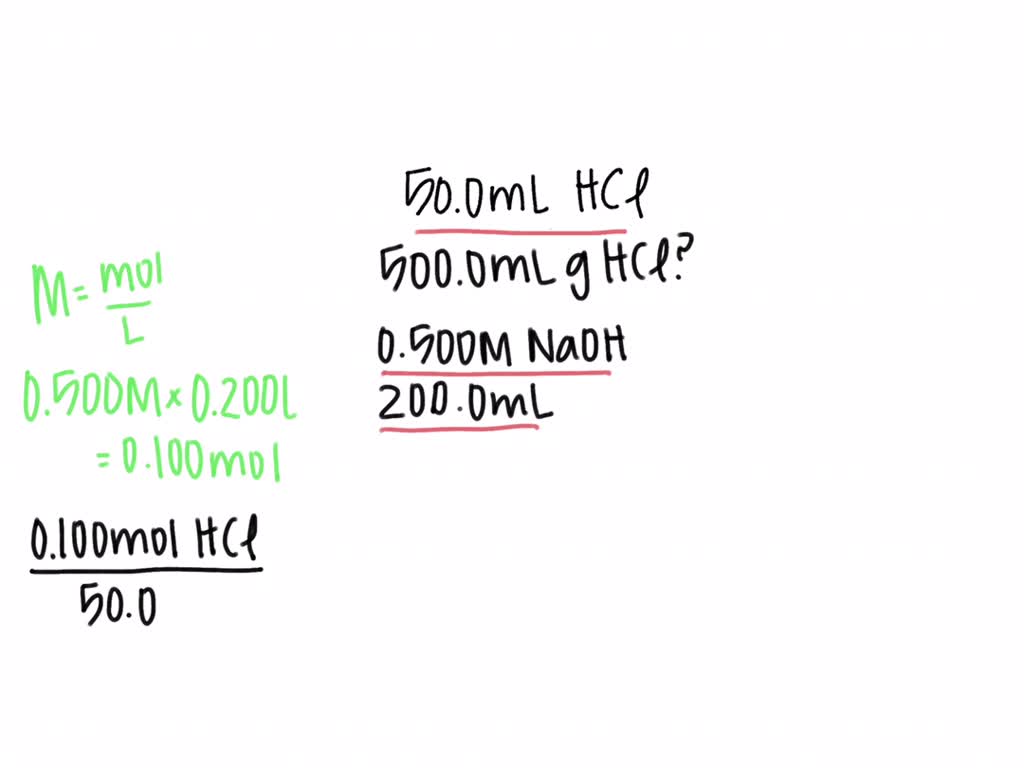 50.0mL HCl
500.0mL g HCl?
0.500M NaOH
200.0mL
M = mol
L
0.500M × 0.200L
= 0.100mol
0.100mol HCl
50.0